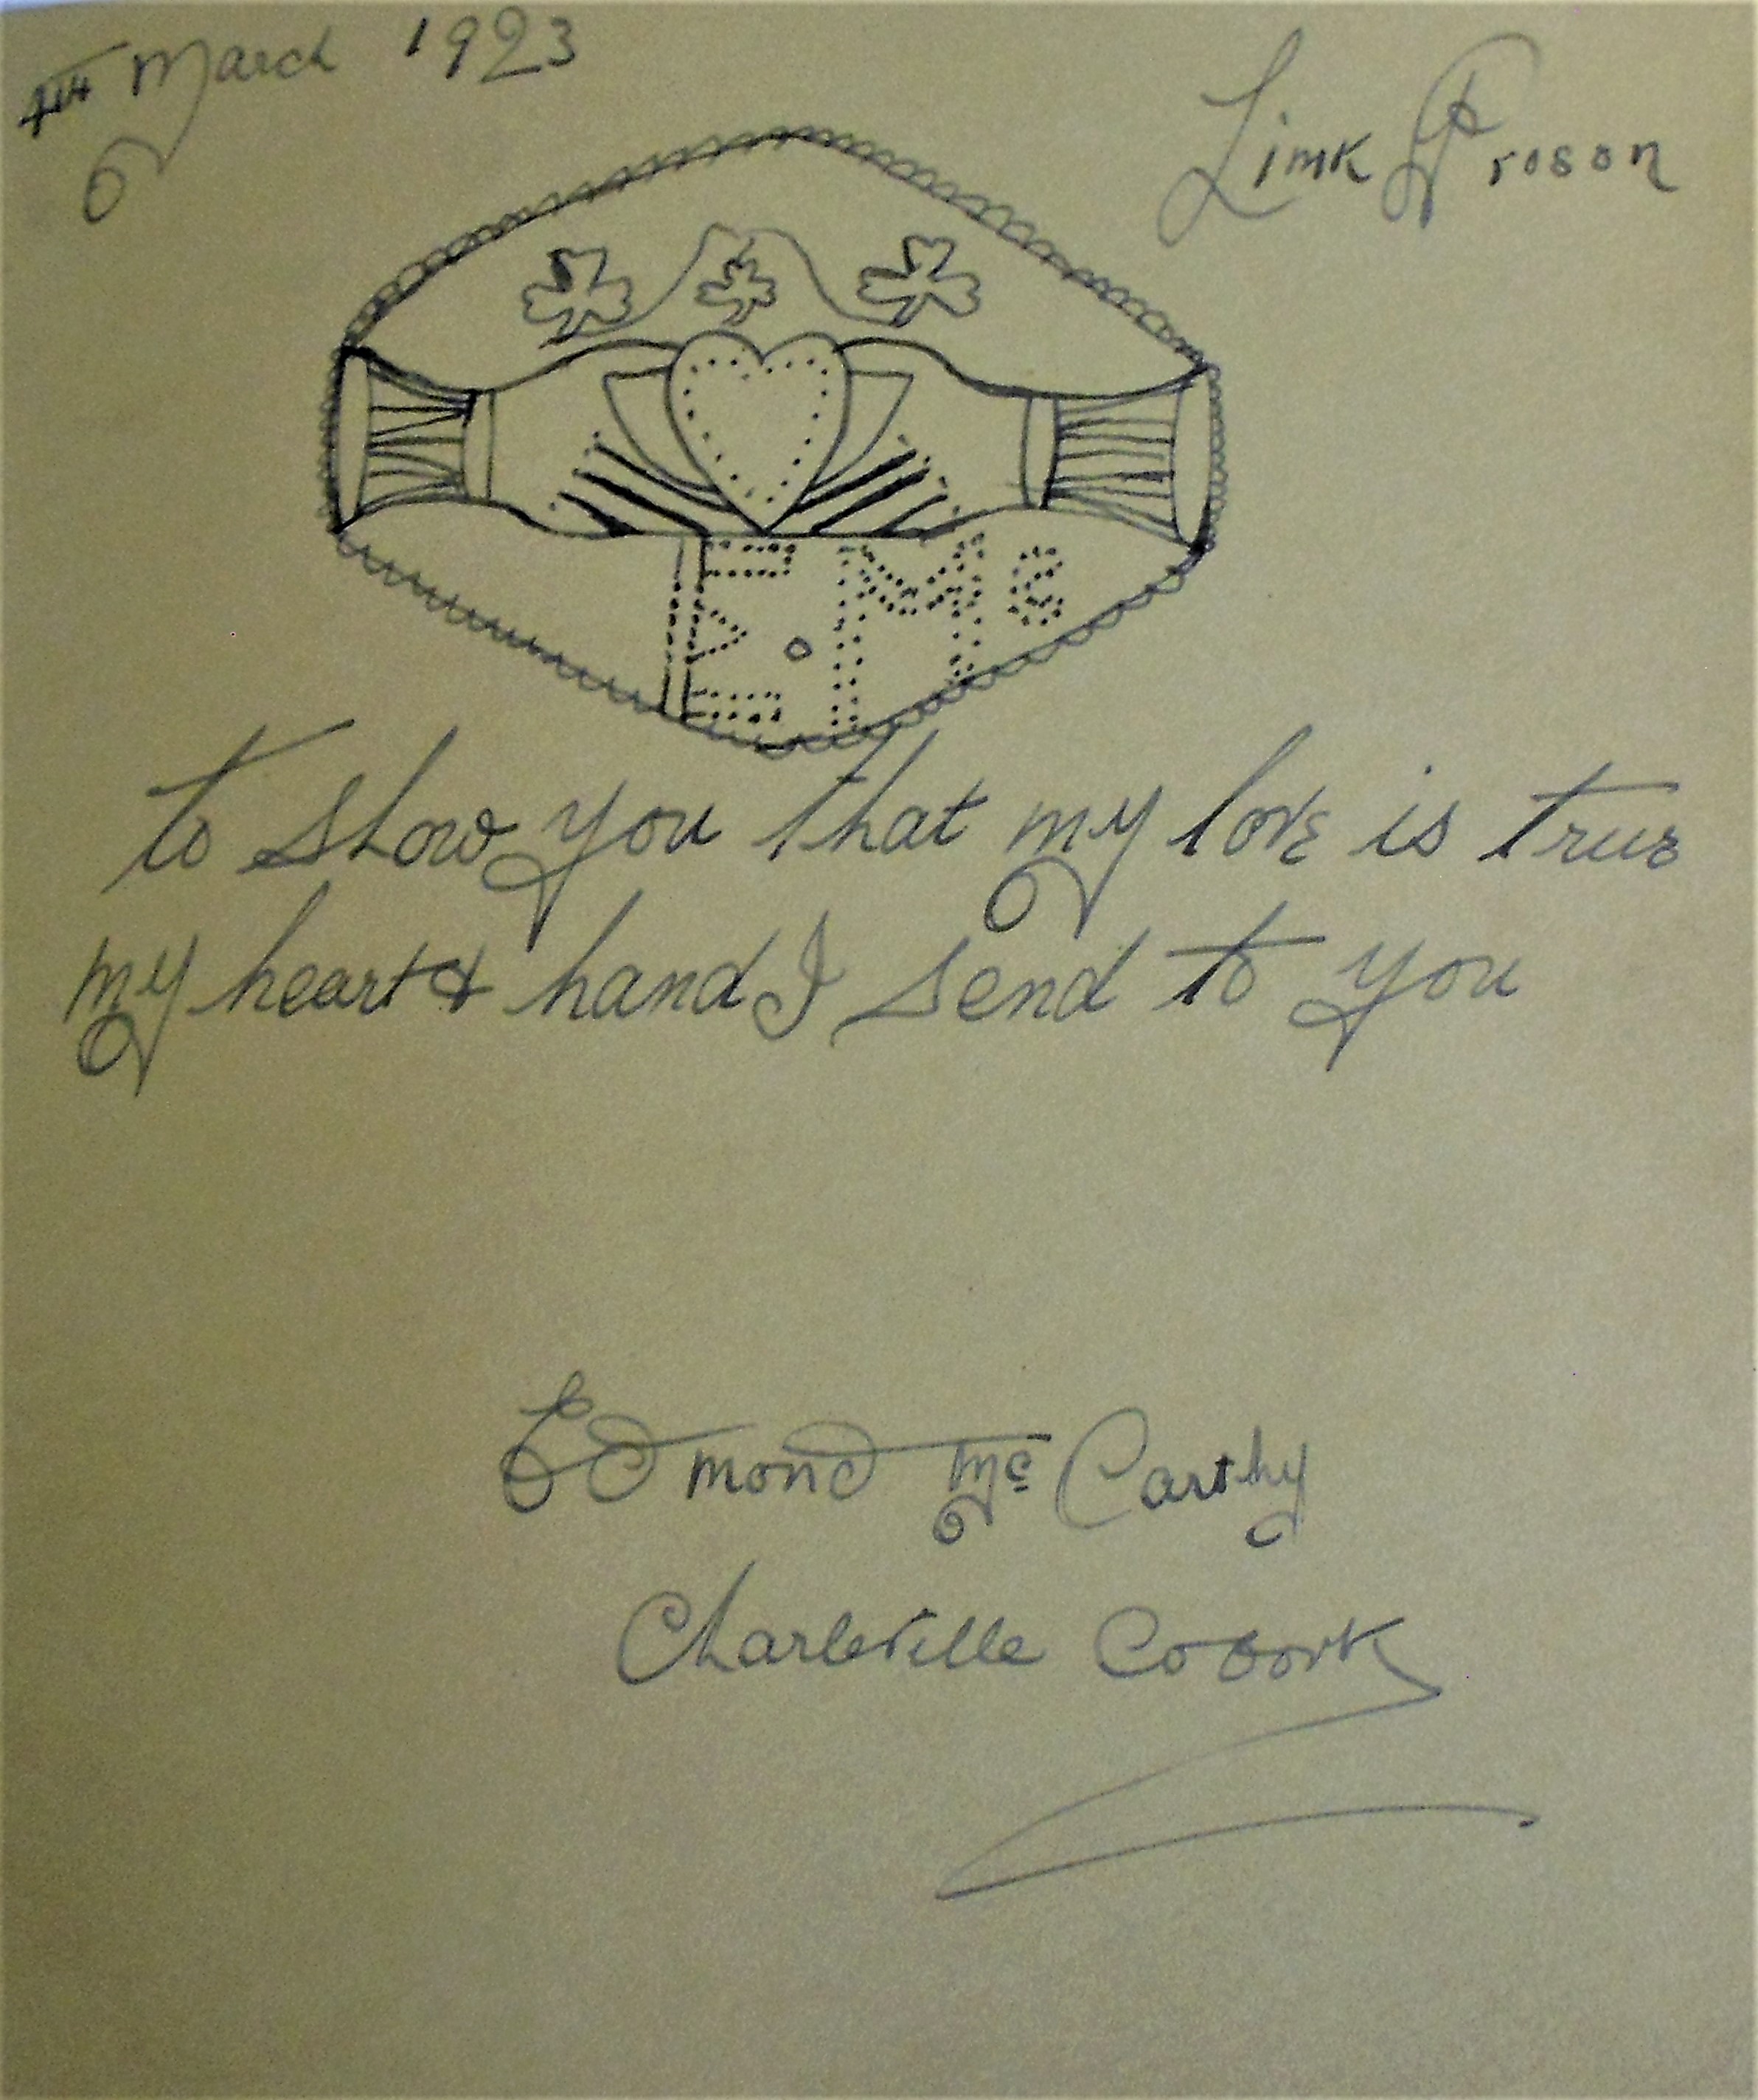 4th March 1923
Limk Proson
E. Mc
to show you that my love is true
my heart & hand I send to you
Edmond Mc Carthy
Charleville Co Cork